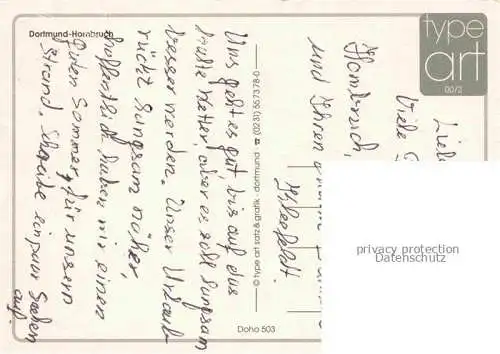 Dortmund-Hombruch
Uns geht es gut, bis auf das
Wetter, aber es soll langsam
besser werden. Unser Urlaub
rückt langsam näher,
hoffentlich haben wir einen
guten Sommer, für unsern
Strand. Schreibe ein paar
auf.
© type art satz & grafik · dortmund ☎ (0231) 55 73 78-0
Doha 503
type
art
00/2
Liebe
Viele
Hombruch,
und Ihren
privacy protection
Datenschutz